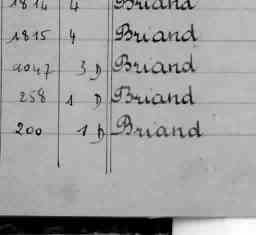 1814 4 Briand
1815 4 Briand
2047 3 D Briand
258 1 D Briand
200 1 D Briand